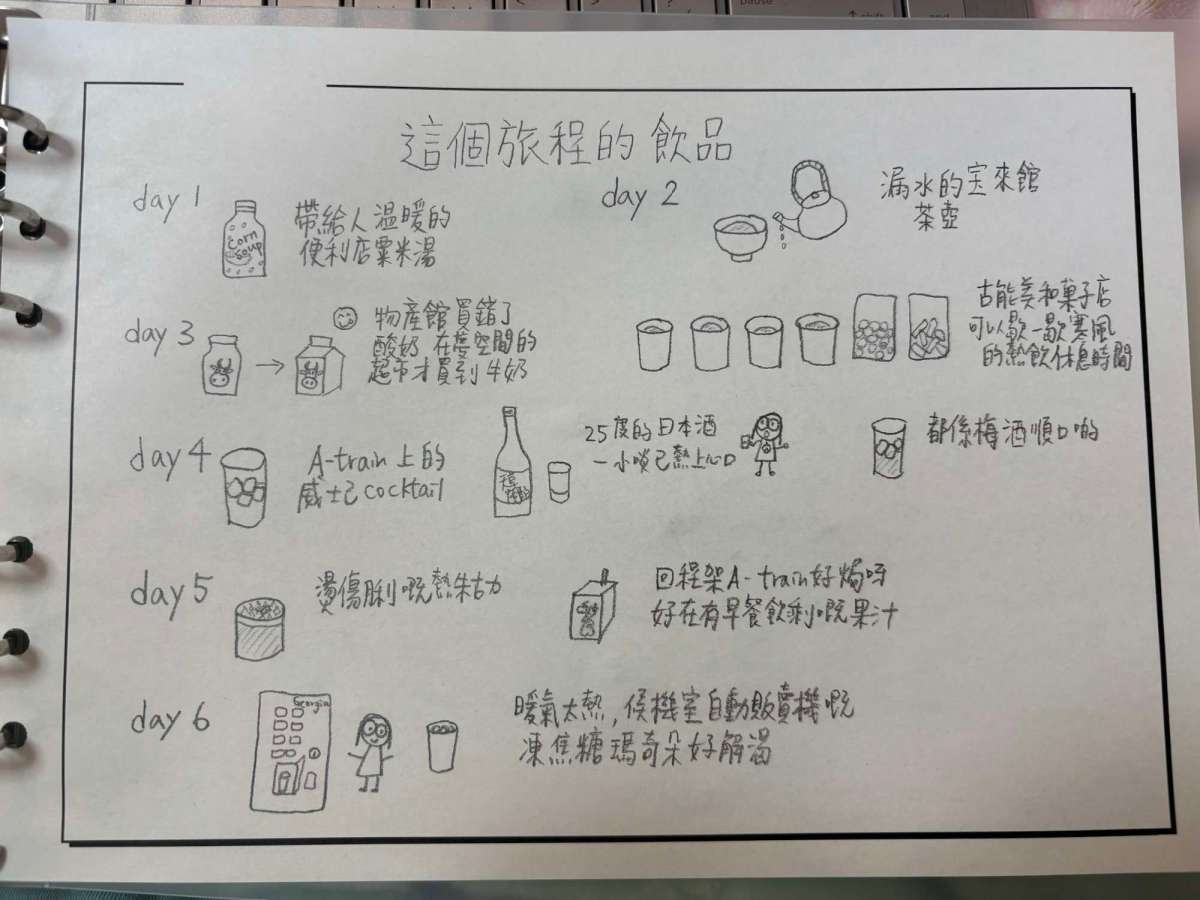 這個旅程的飲品
day 1
corn
soup
帶給人溫暖的
便利店粟米湯
day 2
漏水的宝來館
茶壺
古能美和菓子店
可以歇一歇寒風
的熱飲休息時間
day 3
物產館買錯了
酸奶 在度空間的
超市才買到牛奶
day 4
A-train 上的
威士己 cocktail
25度的日本酒
一小啖已熱上心口
都係梅酒順口啲
day 5
燙傷脷嘅熱朱古力
回程架A-train好焗呀
好在有早餐飲剩嘅果汁
day 6
Georgia
暖氣太熱,候機室自動販賣機嘅
凍焦糖瑪奇朵好解渴